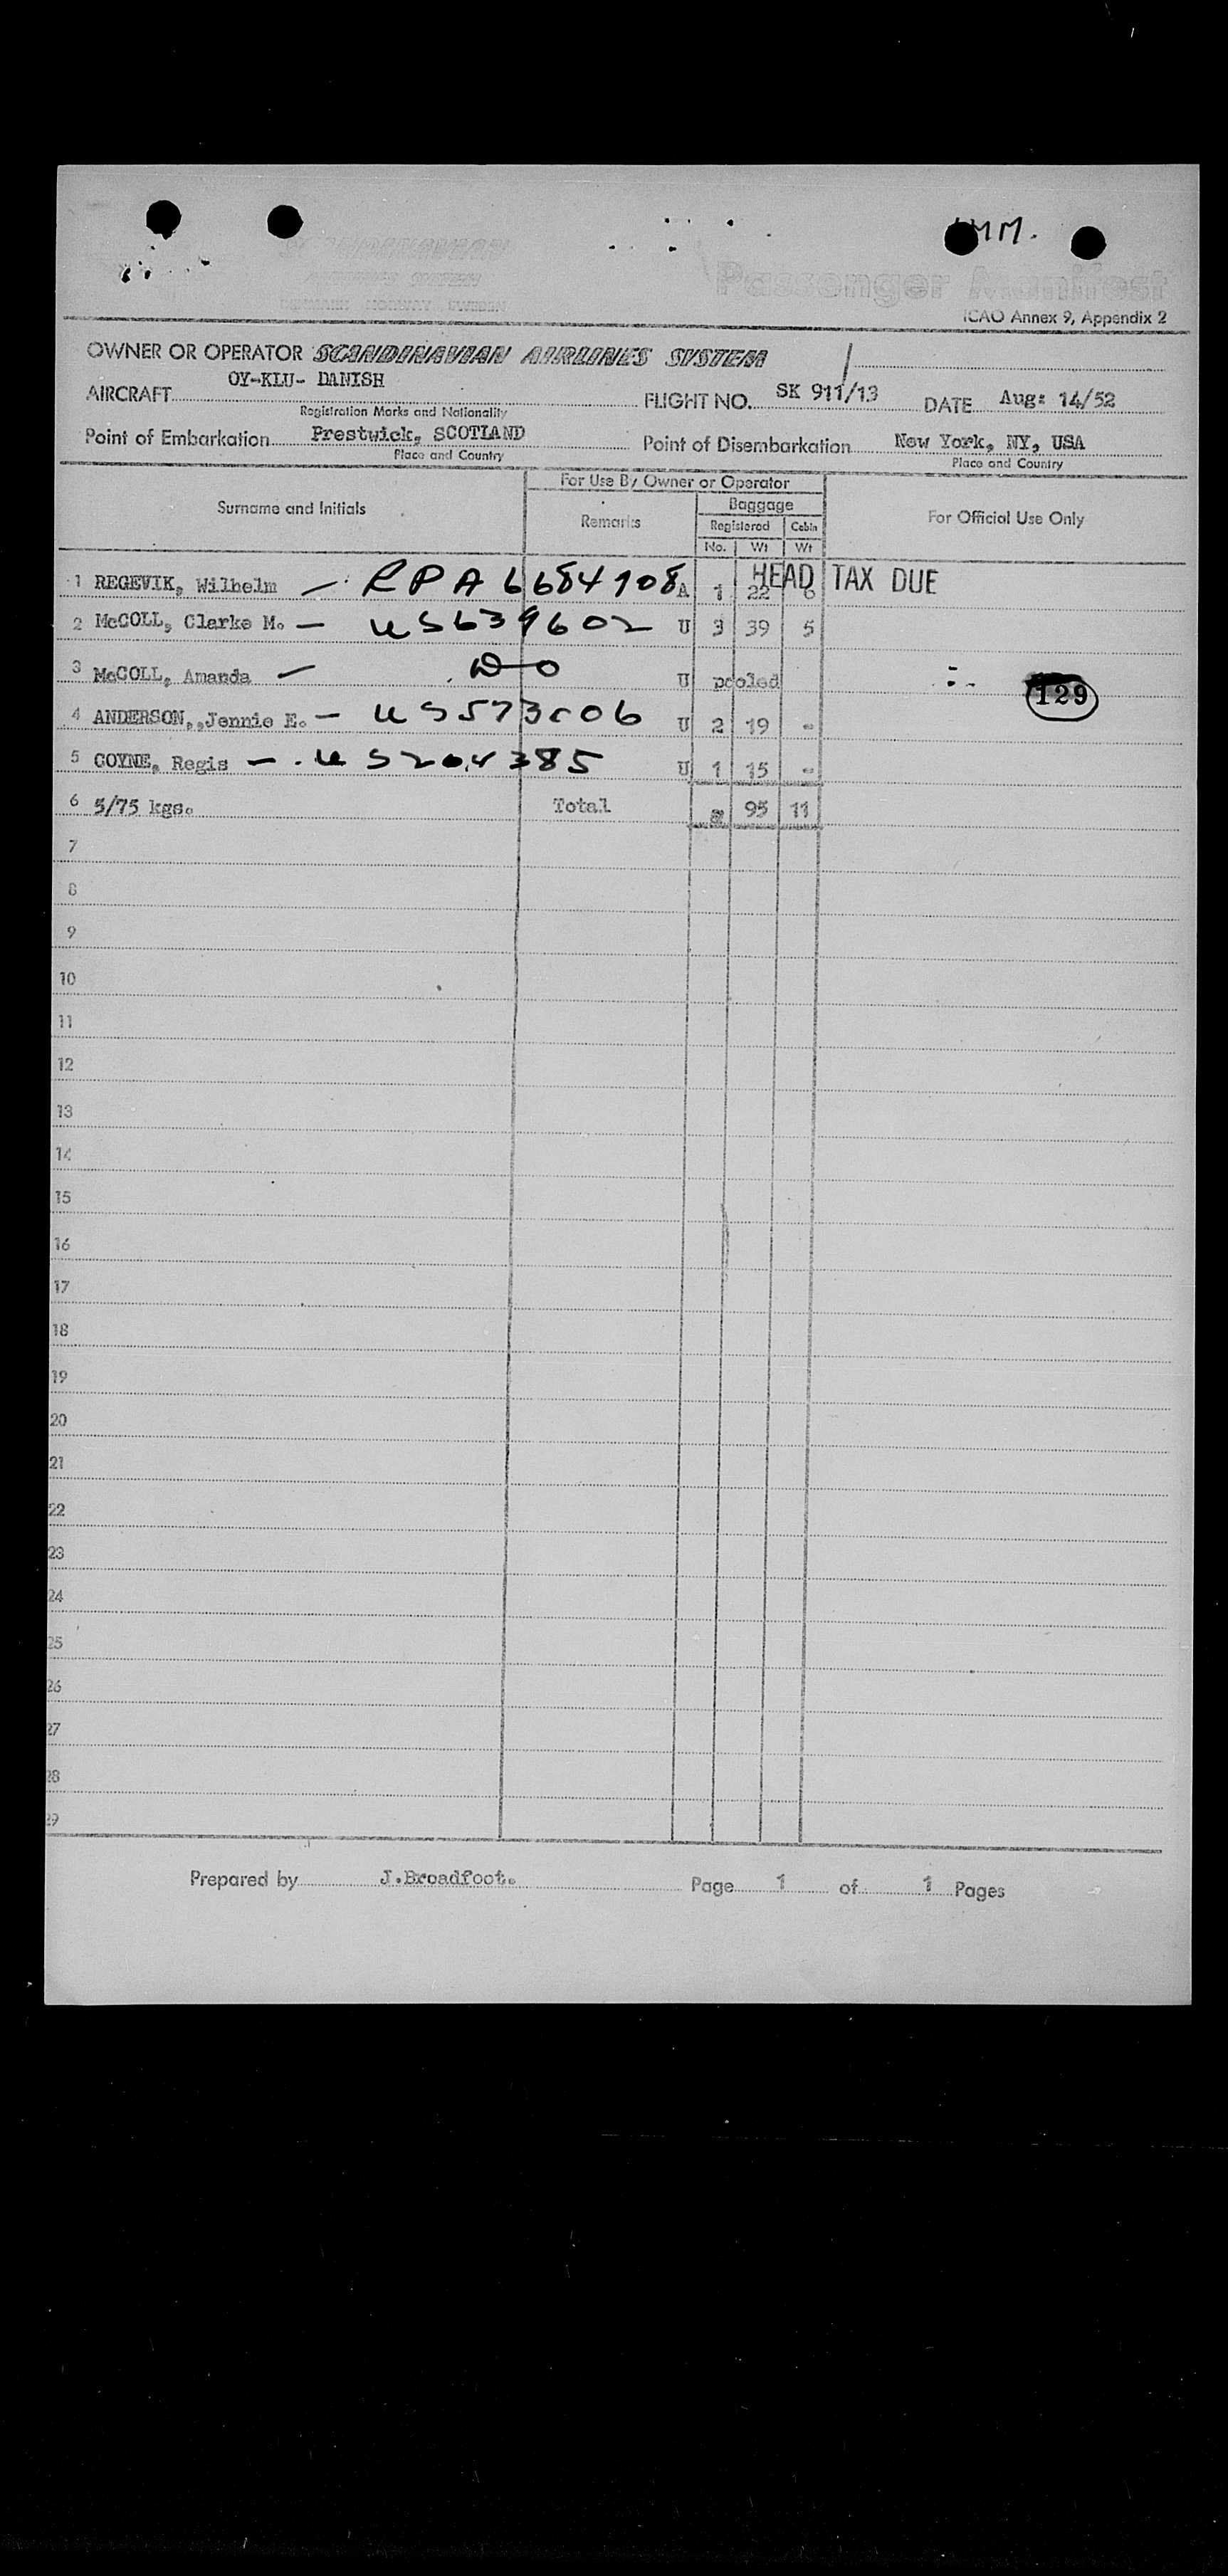 MM.
Passenger Manifest
ICAO Annex 9, Appendix 2
OWNER OR OPERATOR SCANDINAVIAN AIRLINES SYSTEM
AIRCRAFT OY-KLU- DANISH FLIGHT NO. SK 911/13 DATE Aug: 14/52
Registration Marks and Nationality
Point of Embarkation Prestwick, SCOTLAND Point of Disembarkation New York, NY, USA
Place and Country Place and Country
For Use By Owner or Operator
Surname and Initials Remarks Baggage For Official Use Only
Registered Cabin
No. Wt Wt
HEAD TAX DUE
1 REGEVIK, Wilhelm — RPA 6684108 A 1 22 6
2 McCOLL, Clarke M. — US639602 U 3 39 5
3 McCOLL, Amanda — DO U pooled
129
4 ANDERSON,,Jennie E. — US573006 U 2 19 -
5 COYNE, Regis — US204385 U 1 15 -
6 5/75 kgs. Total 95 11
7
8
9
10
11
12
13
14
15
16
17
18
19
20
21
22
23
24
25
26
27
28
29
Prepared by J.Broadfoot. Page 1 of 1 Pages